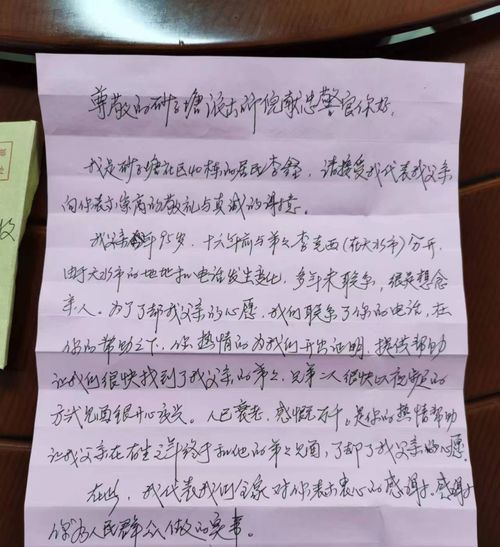 尊敬的砂子塘派出所倪献忠警官你好:
我是砂子塘社区10栋的居民李铎, 请接受我代表我父亲
向你表示崇高的敬礼与真诚的谢意。
我父亲今年95岁, 十六年前与弟弟李克西(在天水市)分开,
由于天水市的地址和电话发生变化, 多年未联系, 很是想念
亲人。为了了却我父亲的心愿, 我们联系了你的电话, 在
你的帮助之下, 你热情的为我们开出证明, 提供帮助
让我们很快找到了我父亲的弟弟, 兄弟二人很快以视频的
方式见面很开心高兴。人已衰老, 感慨万千, 是你的热情帮助
让我父亲在有生之年终于和他的弟弟见面, 了却了我父亲的心愿。
在此, 我代表我们全家对你表示衷心的感谢, 感谢
你为人民群众做的实事。
收